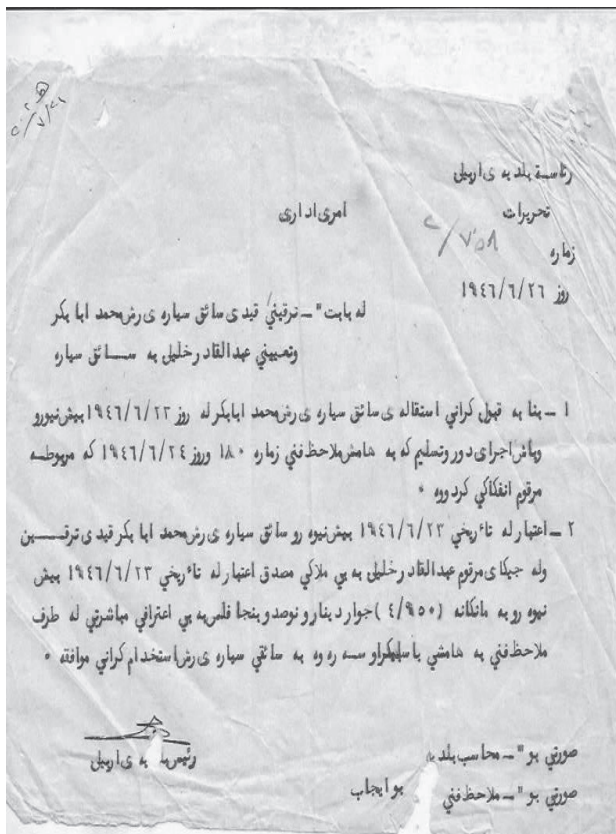 رئاسة بلد يه ى اربيلى
تحريرات
امرى ادارى
زماره ٢/٧٥٨
روز ١٩٤٦/٦/٢٦
له بابت" ـ ترقيني قيدى سائق سياره ى رش محمد ابا بكر
وتعييني عبد القادر خليلى به ســائق سياره
١ ـ بنا به قبول كراني استقاله ى سائق سياره ى رش محمد ابابكر له روز ١٩٤٦/٦/٢٣ پيش نيورو
وپاش اجراى دور وتسليم كه به هامش ملاحظ فني زماره ١٨٠ وروز ١٩٤٦/٦/٢٤ كه مربوطــه
مرقوم انفكاكي كردووه ٠
٢ ـ اعتبار له تأريخي ١٩٤٦/٦/٢٣ پيش نيوه رو سائق سياره ى رش محمد ابا بكر قيدى ترقــين
وله جيكاى مرقوم عبد القادر خليلى به پي ملاكي مصدق اعتبار له تأريخي ١٩٤٦/٦/٢٣ پيش
نيوه رو به مانكانه (٤/٩٥٠) جوار دينار ونوصد وپنجا فلس به پي اعترافي مباشرتي له طرف
ملاحظ فني به هامشي سه ره وه به سائقي سياره ى رش استخدام كراني موافقه ٠
رئيس ى اربيلى
صورتي بو" ـ محاسب بلد يه
صورتي بو" ـ ملاحظ فني بو ايجاب